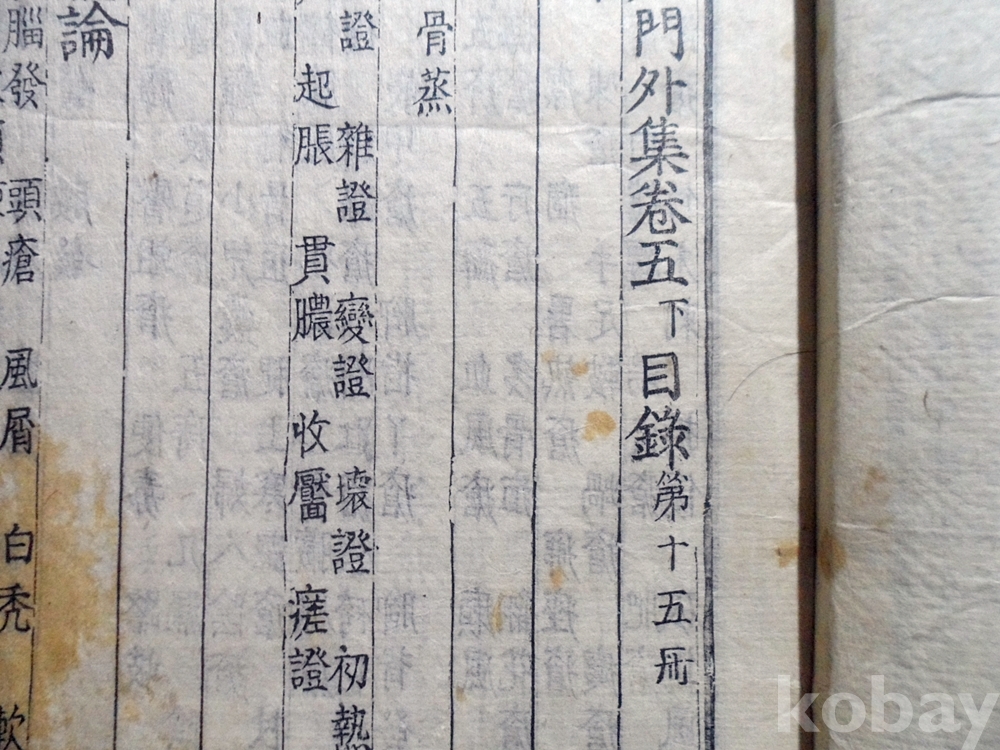 門外集卷五下目錄第十五冊
骨蒸
證 雜證 變證 壞證 初熱
起脹 貫膿 收靨 痘證
論
頭瘡 風屑 白禿 軟
腦發
kobay